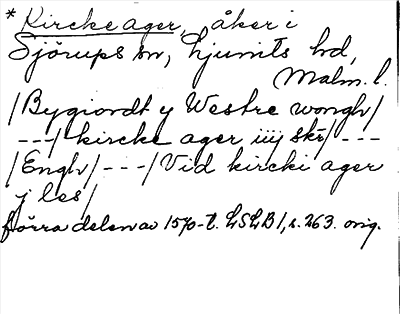 * Kircke ager, åker i
Sjörups sn, Ljunits hd,
Malm. l.
/Bygiordt y Westre wongh/
---/ kircke ager iiij skr/ ---
/Engh/ ---/ Vid kircki ager
j les/
förra delen av 1570-t. LSLB 1, s. 263. orig.